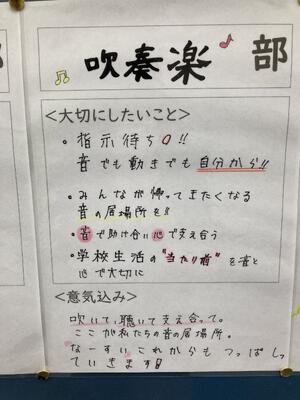 吹奏楽 部
<大切にしたいこと>
・指示待ち0!!
音でも動きでも自分から!!
・みんなが帰ってきたくなる
音の居場所を!!
・音で助け合い心で支え合う
・学校生活の"当たり前"を音と
心で大切に
<意気込み>
吹いて、聴いて支え合って。
ここが私たちの音の居場所。
なーすいこれからもつっぱしっ
ていきます